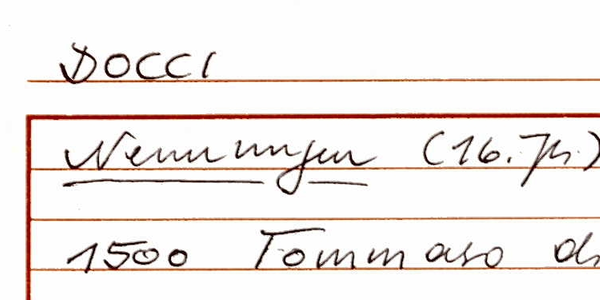 DOCCI
Nennungen (16. Jh.)
1500 Tommaso